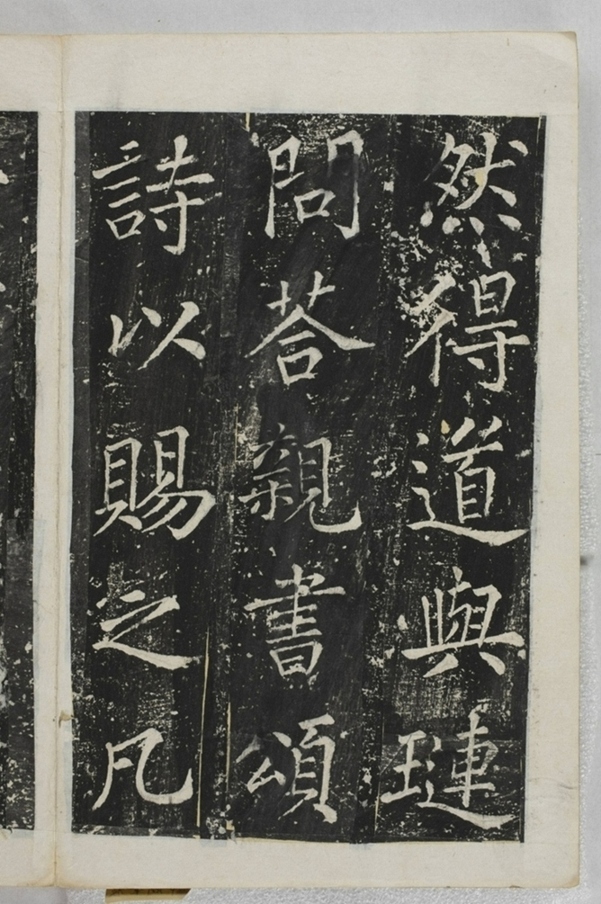 然得道與璉
問荅親書頌
詩以賜之凡